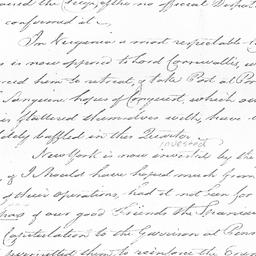 conformed it.
In Virginia a most respectable
is now opposed to Lord Cornwallis, w
ced him to retreat, & take Post at Por
Sanguine hopes of Conquest, which ou
s flattered themselves with, have
tely baffled in this Quarter
invested
New York is now invested by the
& I should have hoped much from
of their operations, had it not been for
of our good Friends the Spaniar
Capitulation to the Garrison at Pens
permitted them to reinforce the